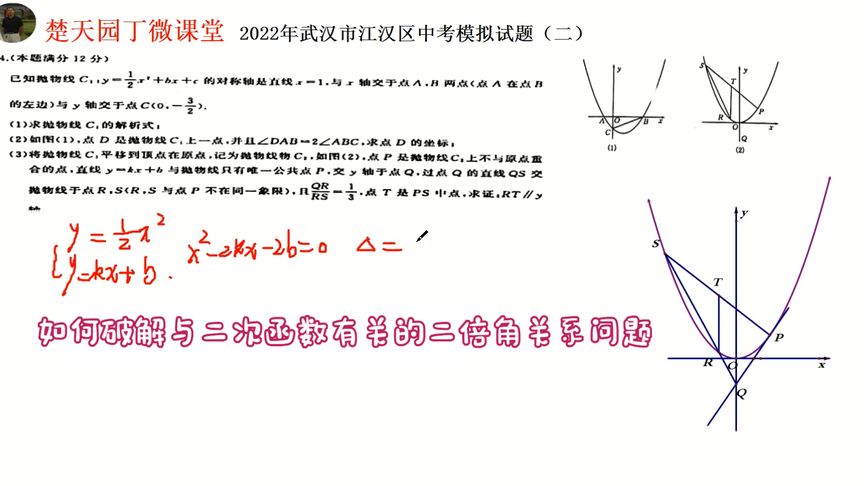 楚天园丁微课堂 2022年武汉市江汉区中考模拟试题(二)
4.(本题满分 12 分)
已知抛物线 C₁:y=1/2x²+bx+c 的对称轴是直线 x=1,与 x 轴交于点 A,B 两点(点 A 在点 B
的左边)与 y 轴交于点 C(0,-3/2).
(1)求抛物线 C₁的解析式;
(2)如图(1),点 D 是抛物线 C₁上一点,并且∠DAB=2∠ABC,求点 D 的坐标;
(3)将抛物线 C₁平移到顶点在原点,记为抛物线物 C₂,如图(2),点 P 是抛物线 C₂上不与原点重
合的点,直线 y=kx+b 与抛物线只有唯一公共点 P,交 y 轴于点 Q,过点 Q 的直线 QS 交
抛物线于点 R,S(R,S 与点 P 不在同一象限),且QR/RS=1/3,点 T 是 PS 中点,求证:RT∥y
轴
y
A O B x
C
(1)
S y
T
P
R
O x
Q
(2)
y=1/2x²
y=kx+b.
x²-2kx-2b=0 Δ=
如何破解与二次函数有关的二倍角关系问题
y
S
T
P
R O x
Q